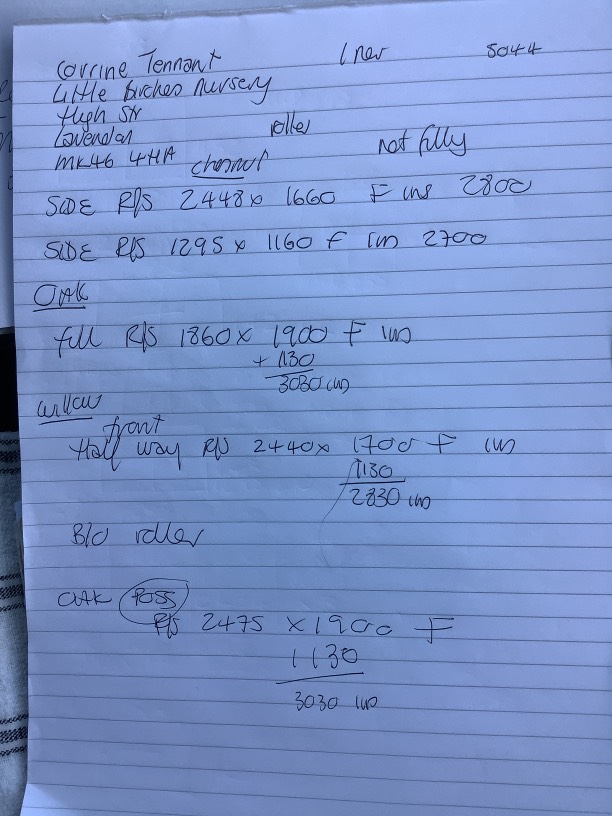 Corrine Tennant 1 new 5044
Little Birches nursery
High Str
Lavendon roller
MK46 4HA channel not fully
SIDE R/S 2448 x 1660 F 2800
SIDE R/S 1295 x 1160 F 2700
OAK
full R/S 1860 x 1900 F
+ 1130
3030
Willow
front
Half way R/S 2440 x 1700 F
1130
2830
B/O roller
OAK POSS
R/S 2475 x 1900 F
1130
3030